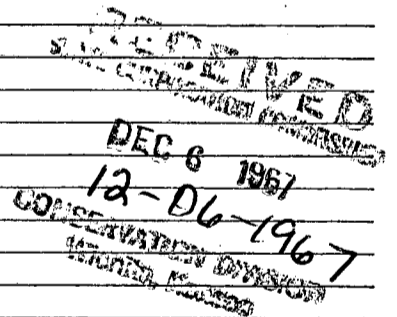 RECEIVED
STATE CORPORATION COMMISSION
DEC 6 1967
12-06-1967
CONSERVATION DIVISION
Wichita, Kansas